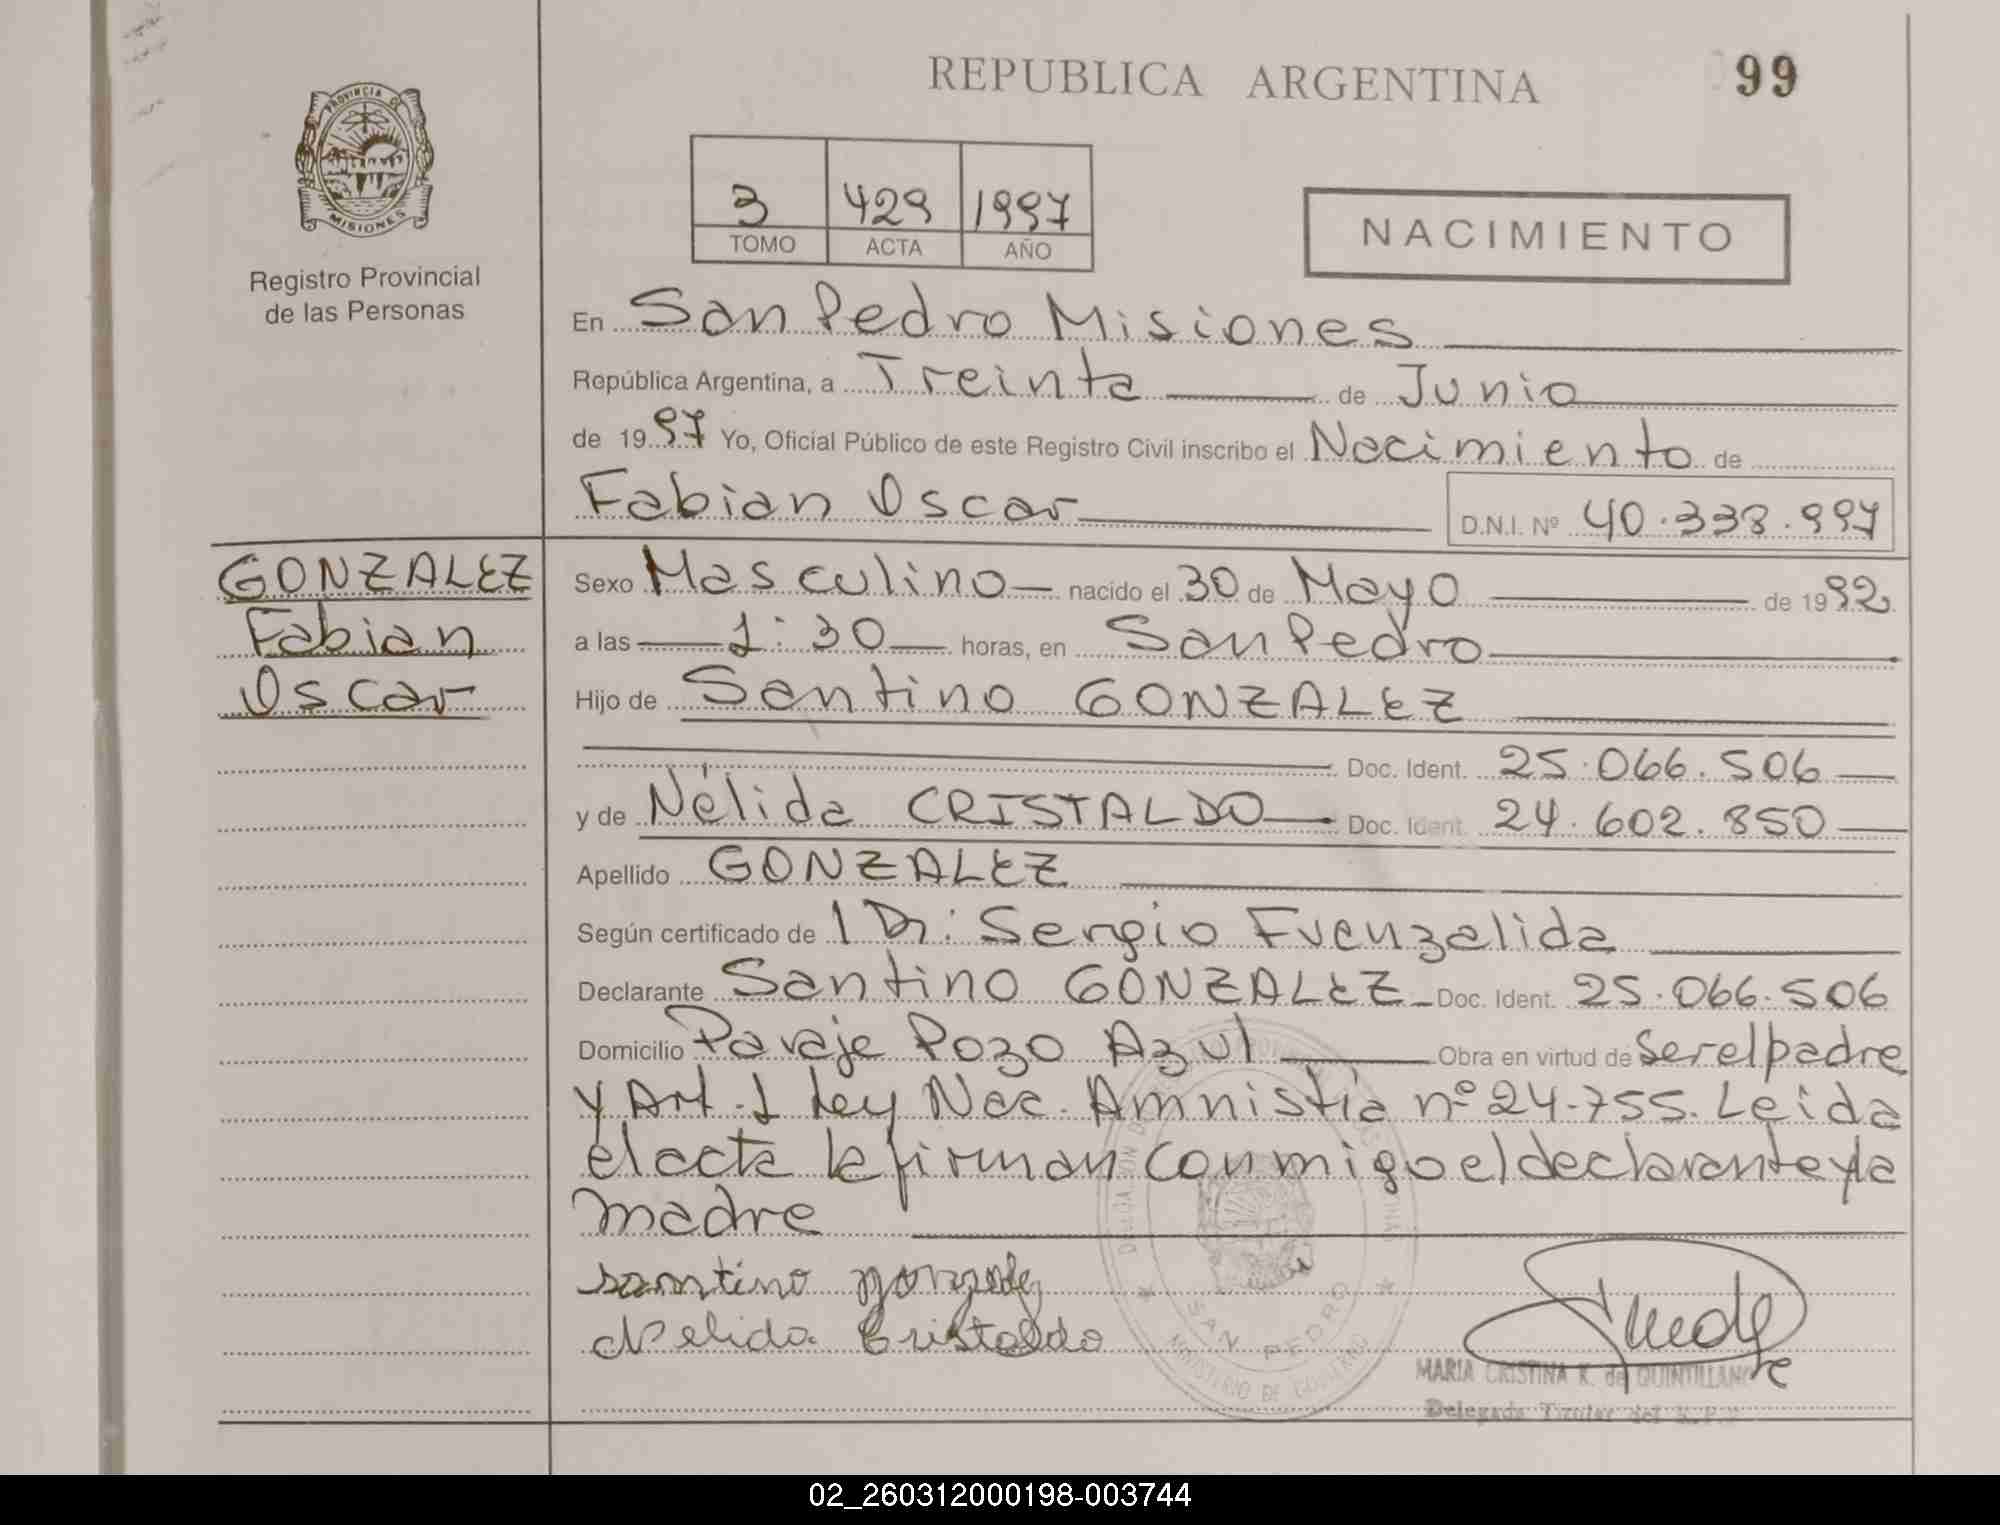 REPUBLICA ARGENTINA
99
PROVINCIA DE
MISIONES
Registro Provincial
de las Personas
3 429 1997
TOMO ACTA AÑO
NACIMIENTO
En San Pedro Misiones
República Argentina, a Treinta de Junio
de 1997 Yo, Oficial Público de este Registro Civil inscribo el Nacimiento de
Fabian Oscar D.N.I. Nº 40.338.997
GONZALEZ
Fabian
Oscar
Sexo Masculino nacido el 30 de Mayo de 1992
a las 1:30 horas, en San Pedro
Hijo de Santino GONZALEZ
Doc. Ident. 25.066.506
y de Nélida CRISTALDO Doc. Ident. 24.602.850
Apellido GONZALEZ
Según certificado de 1 Dr: Sergio Fuenzalida
Declarante Santino GONZALEZ Doc. Ident. 25.066.506
Domicilio Paraje Pozo Azul Obra en virtud de ser el padre
y Art. 1 Ley Nac. Amnistia nº 24.755. Leida
el acta la firman conmigo el declarante y la
madre
santino gonzalez
Nelida Cristaldo
SAN PEDRO
MINISTERIO DE GOBIERNO
MARIA CRISTINA K. de QUINTILLAN
Delegada Titular del R.P.P.
02_260312000198-003744